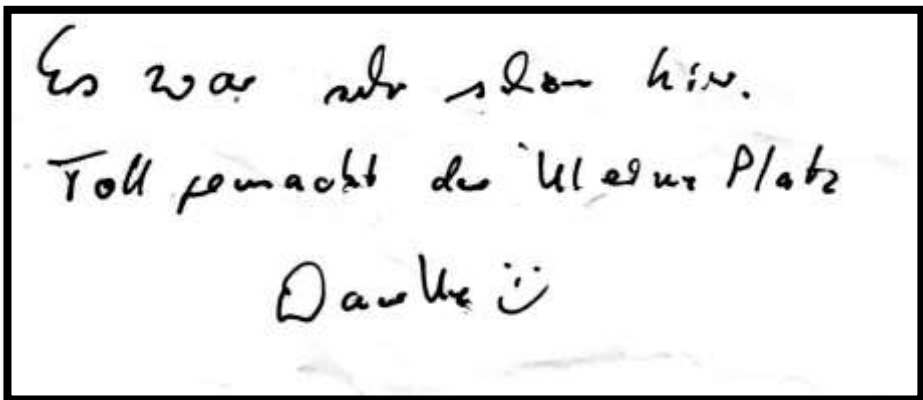 Es war sehr schön hier.
Toll gemacht der kleine Platz
Danke ☺